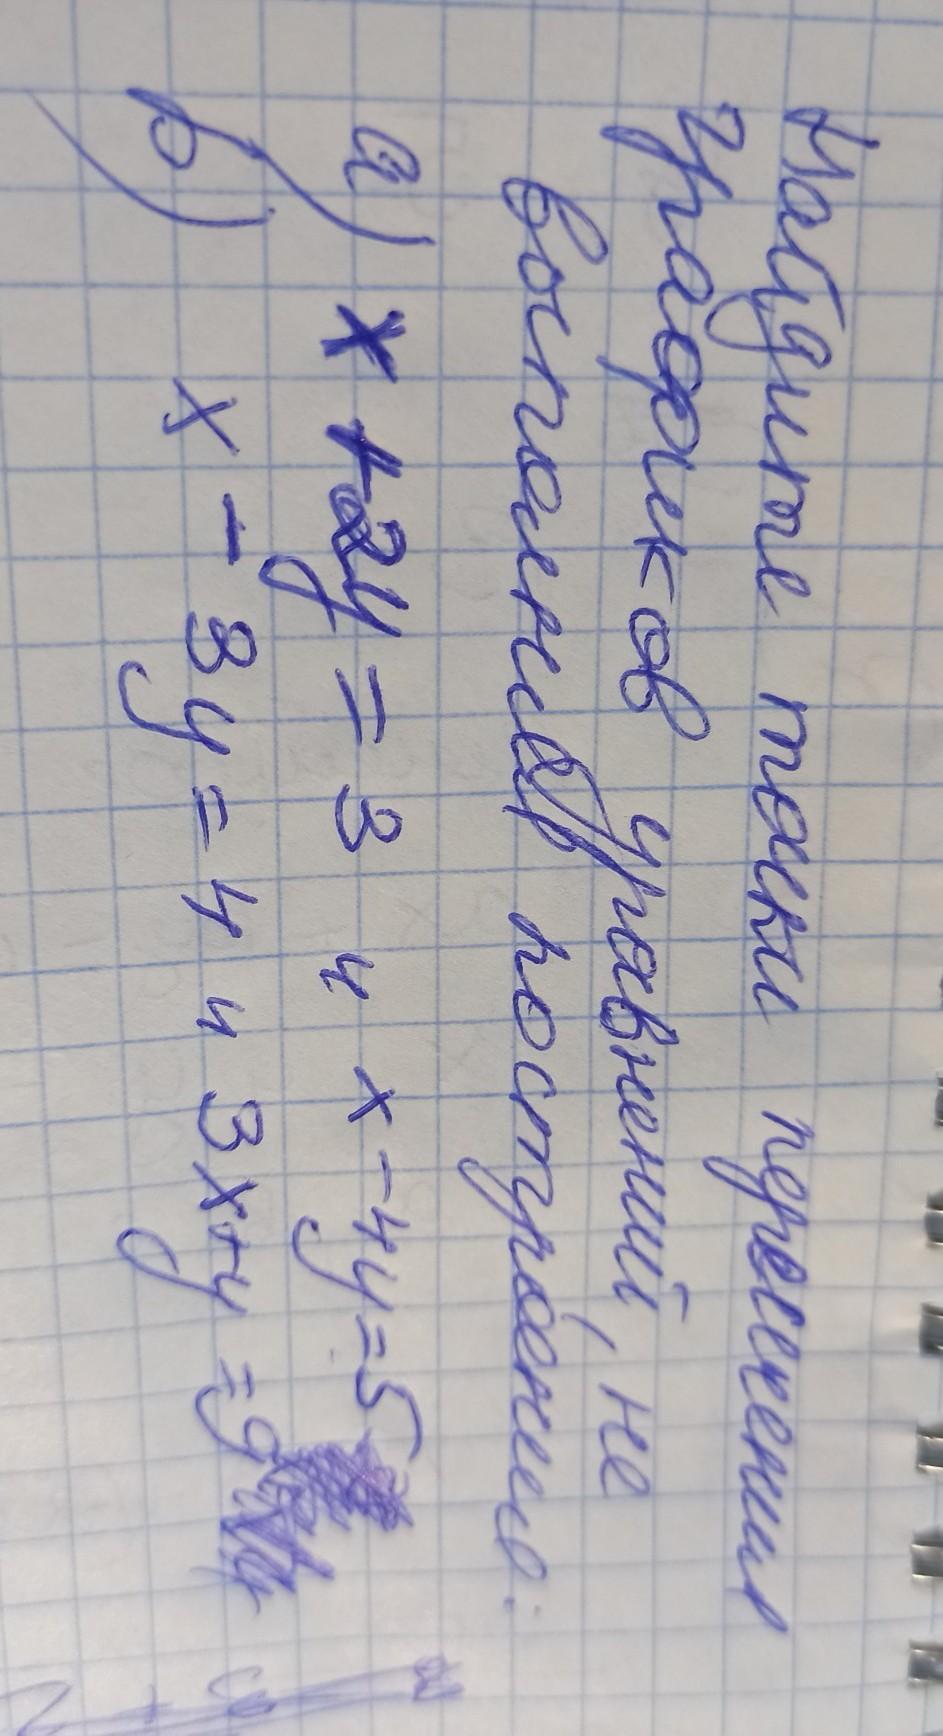 Найдите точки пересечения
графиков уравнений, не
выполняя построению:
а) x + 2y = 3 и x - 4y = 5
б) x - 3y = 4 и 3x + y = 9